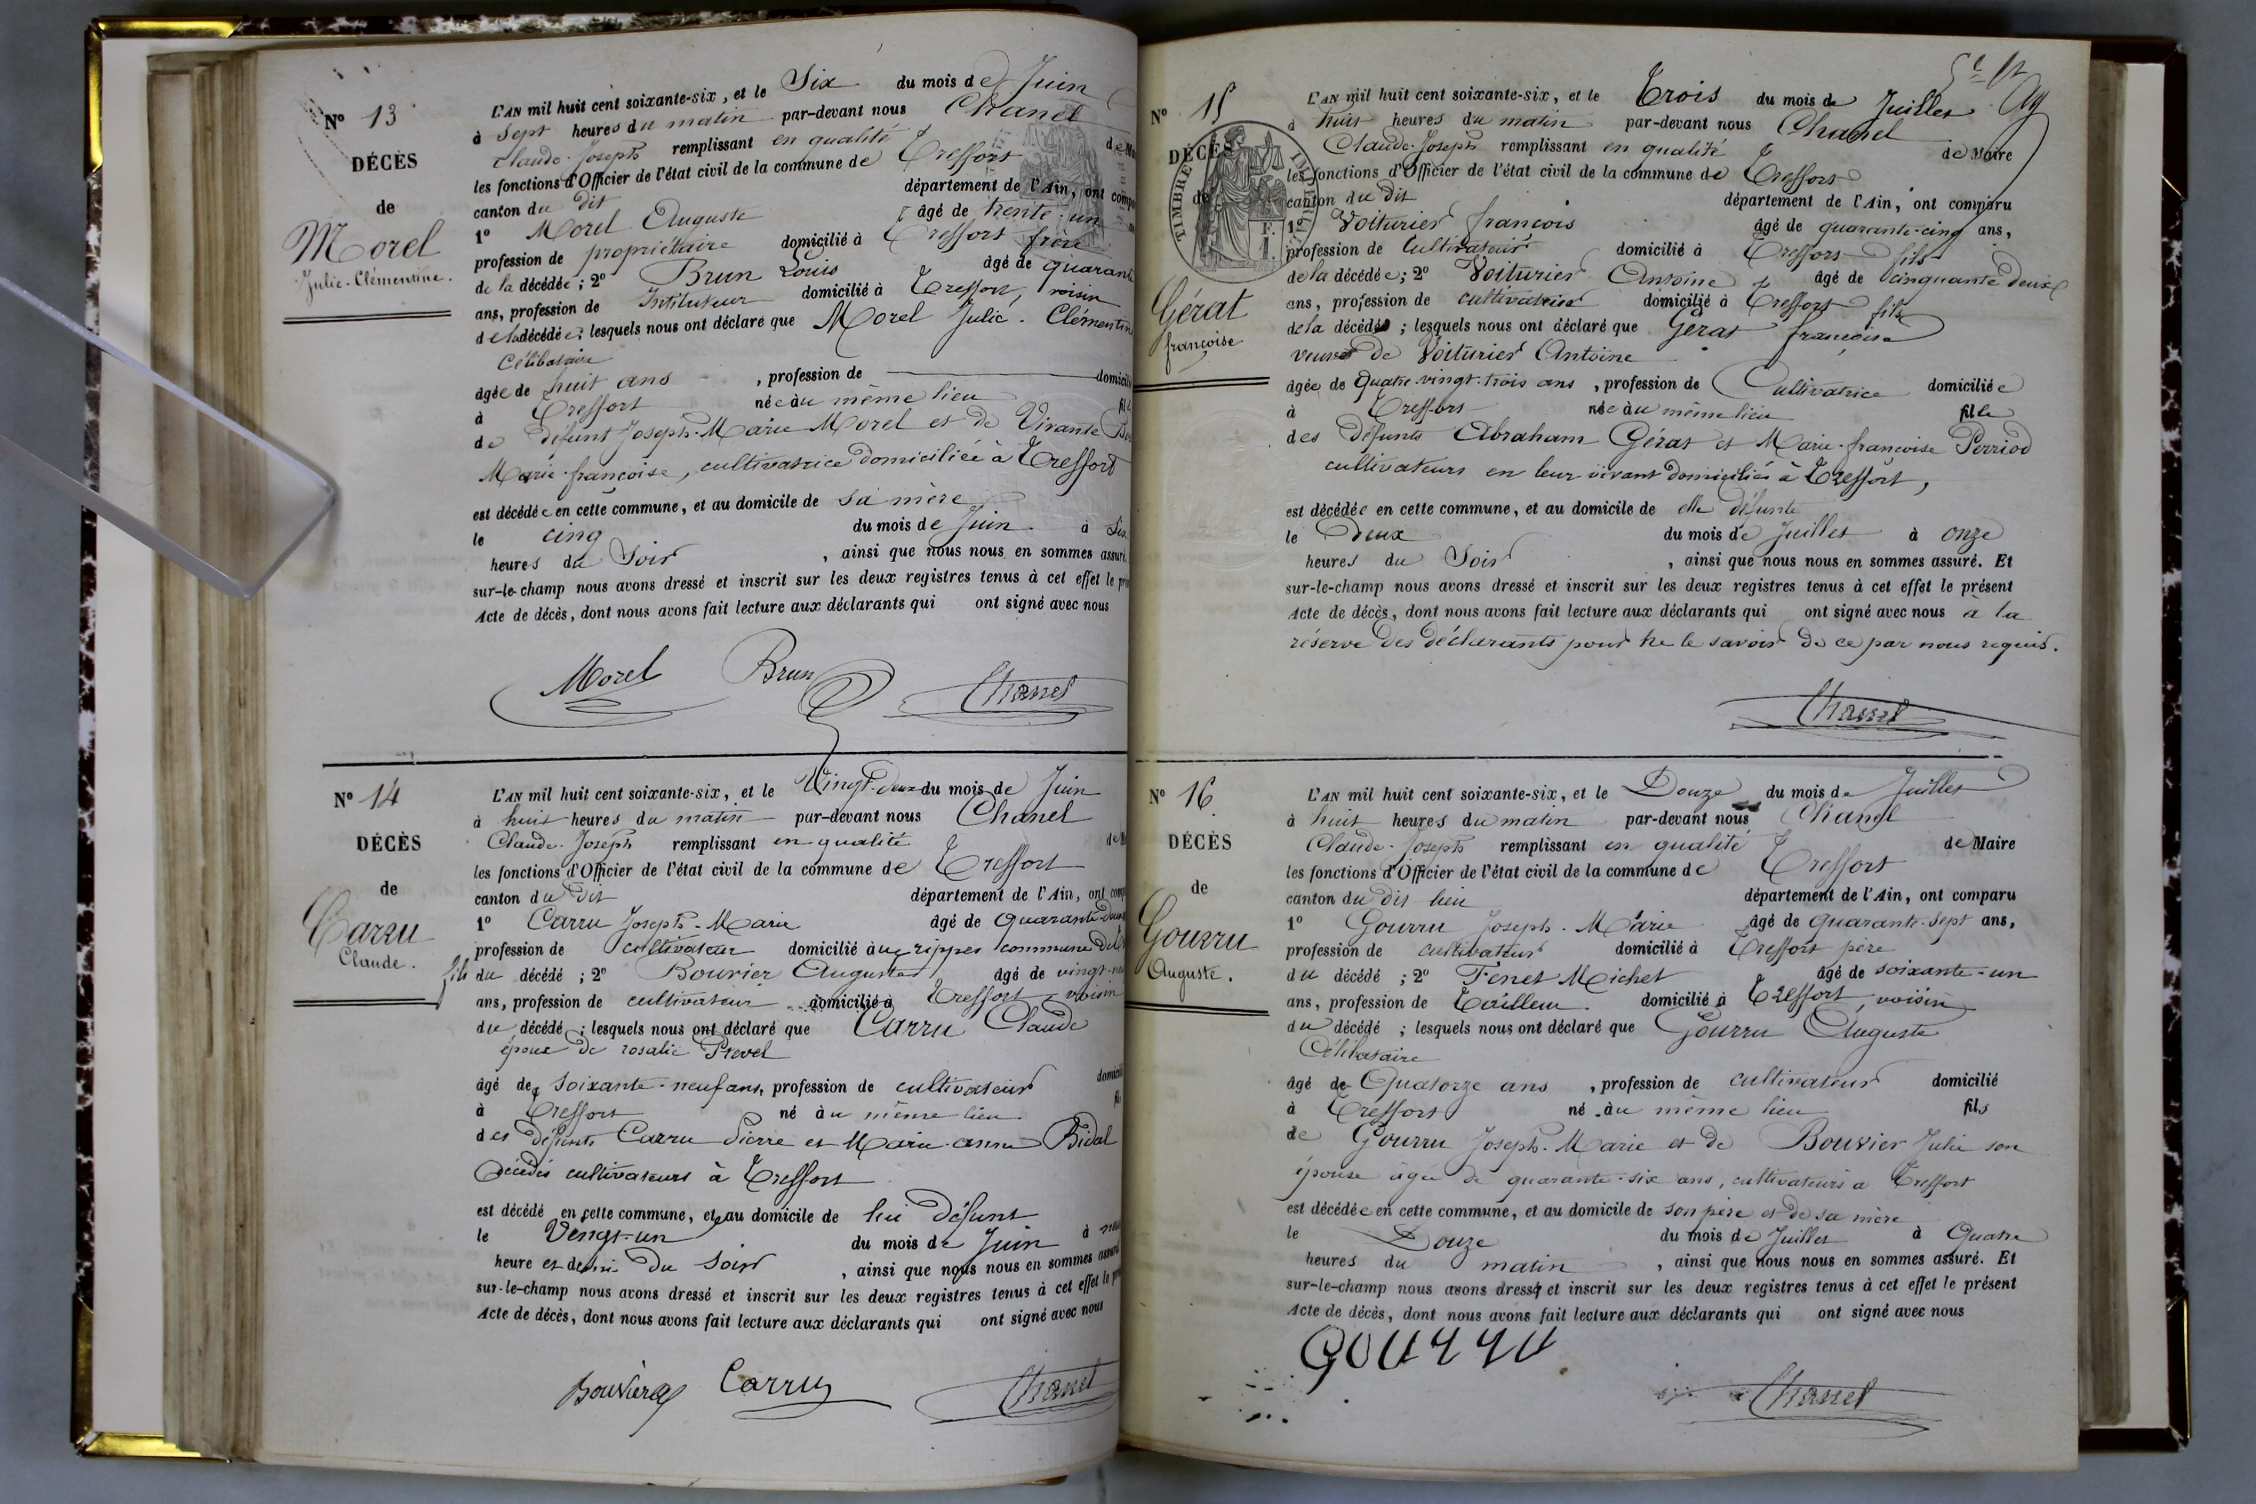 N° 13
DÉCÈS
de
Morel
Julie-Clémentine.
L'AN mil huit cent soixante-six, et le Six du mois de Juin
à Sept heures du matin par-devant nous Chanel
Claude-Joseph remplissant en qualité de
les fonctions d'Officier de l'état civil de la commune de Treffort
canton du dit département de l'Ain, ont
1° Morel Auguste âgé de trente-un
profession de propriétaire domicilié à Treffort frère
de la décédée ; 2° Brun Louis âgé de quarante
ans, profession de Instituteur domicilié à Treffort, voisin
de la décédée ; lesquels nous ont déclaré que Morel Julie-Clémentine
Célibataire
âgée de huit ans, profession de
à Treffort née au même lieu
de défunt Joseph-Marie Morel et de Vivante
Marie-françoise, cultivatrice domiciliée à Treffort
est décédée en cette commune, et au domicile de sa mère
le cinq du mois de Juin à Six
heures du Soir, ainsi que nous nous en sommes assuré.
sur-le-champ nous avons dressé et inscrit sur les deux registres tenus à cet effet le
Acte de décès, dont nous avons fait lecture aux déclarants qui ont signé avec nous
Morel Brun Chanel
N° 14
DÉCÈS
de
Carru
Claude.
L'AN mil huit cent soixante-six, et le Vingt-deux du mois de Juin
à huit heures du matin par-devant nous Chanel
Claude-Joseph remplissant en qualité de
les fonctions d'Officier de l'état civil de la commune de Treffort
canton du dit département de l'Ain, ont
1° Carru Joseph-Marie âgé de quarante-deux
profession de cultivateur domicilié au rippes commune de
fils du décédé ; 2° Bouvier Auguste âgé de vingt-
ans, profession de cultivateur domicilié à Treffort voisin
du décédé ; lesquels nous ont déclaré que Carru Claude
époux de rosalie Prevel
âgé de soixante-neuf ans, profession de cultivateur
à Treffort né au même lieu
des défunts Carru Pierre et Marie-anne Bidal
décédés cultivateurs à Treffort
est décédé en cette commune, et au domicile de lui défunt
le Vingt-un du mois de Juin à
heure et demi du Soir, ainsi que nous nous en sommes assuré
sur-le-champ nous avons dressé et inscrit sur les deux registres tenus à cet effet le
Acte de décès, dont nous avons fait lecture aux déclarants qui ont signé avec nous
Bouvier Carru Chanel
N° 15
DÉCÈS
de
TIMBRE IMPÉRIAL
Gérat
françoise
L'AN mil huit cent soixante-six, et le Trois du mois de Juillet
à huit heures du matin par-devant nous Chanel
Claude-Joseph remplissant en qualité de Maire
les fonctions d'Officier de l'état civil de la commune de Treffort
canton du dit département de l'Ain, ont comparu
1° Voiturier françois âgé de quarante-cinq ans,
profession de Cultivateur domicilié à Treffort fils
de la décédée ; 2° Voiturier Antoine âgé de cinquante deux
ans, profession de cultivateur domicilié à Treffort fils
de la décédée ; lesquels nous ont déclaré que Gérat françoise
veuve de Voiturier Antoine
âgée de quatre-vingt-trois ans, profession de Cultivatrice domiciliée
à Treffort née au même lieu fille
des défunts Abraham Gérat et Marie-françoise Perriod
cultivateurs en leur vivant domiciliés à Treffort,
est décédée en cette commune, et au domicile de elle défunte
le Deux du mois de Juillet à onze
heures du Soir, ainsi que nous nous en sommes assuré. Et
sur-le-champ nous avons dressé et inscrit sur les deux registres tenus à cet effet le présent
Acte de décès, dont nous avons fait lecture aux déclarants qui ont signé avec nous à la
réserve des déclarants pour ne le savoir de ce par nous requis.
Chanel
N° 16
DÉCÈS
de
Gourru
Auguste.
L'AN mil huit cent soixante-six, et le Douze du mois de Juillet
à huit heures du matin par-devant nous Chanel
Claude-Joseph remplissant en qualité de Maire
les fonctions d'Officier de l'état civil de la commune de Treffort
canton du dit lieu département de l'Ain, ont comparu
1° Gourru Joseph-Marie âgé de quarante-sept ans,
profession de cultivateur domicilié à Treffort père
du décédé ; 2° Fenet Michel âgé de soixante-un
ans, profession de tailleur domicilié à Treffort, voisin
du décédé ; lesquels nous ont déclaré que Gourru Auguste
Célibataire
âgé de Quatorze ans, profession de cultivateur domicilié
à Treffort né au même lieu fils
de Gourru Joseph-Marie et de Bouvier Julie son
épouse âgée de quarante-six ans, cultivateurs à Treffort
est décédée en cette commune, et au domicile de son père et de sa mère
le Douze du mois de Juillet à Quatre
heures du matin, ainsi que nous nous en sommes assuré. Et
sur-le-champ nous avons dressé et inscrit sur les deux registres tenus à cet effet le présent
Acte de décès, dont nous avons fait lecture aux déclarants qui ont signé avec nous
Gourru
Chanel